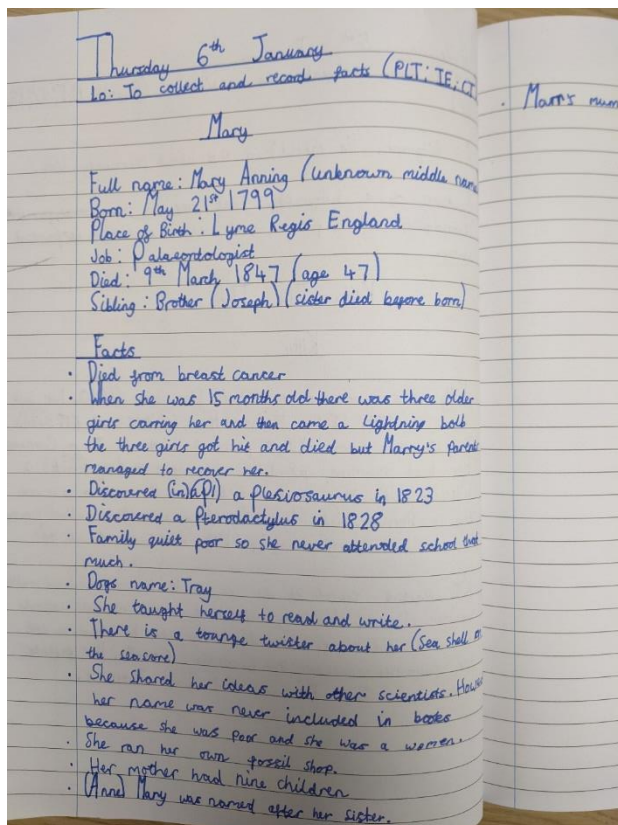 Thursday 6th January
Lo: To collect and record facts (PLT: TE: CT
Mary
Full name: Mary Anning (unknown middle name
Born: May 21st 1799
Place of Birth: Lyme Regis England
Job: Palaeontologist
Died: 9th March 1847 (age 47)
Sibling: Brother (Joseph) (sister died before born)
Facts
· Died from breast cancer
· When she was 15 months old there was three older
girls carring her and then came a lightning bolb
the three girls got hit and died but Marry's parents
managed to recover her.
· Discovered a plesiosaurus in 1823
· Discovered a Pterodactylus in 1828
· Family quiet poor so she never attended school that
much.
· Dogs name: Tray
· She taught herself to read and write.
· There is a tounge twister about her (Sea shell on
the seasore)
· She shared her ideas with other scientists. Howe
her name was never included in books
because she was poor and she was a women.
· She ran her own fossil shop.
· Her mother had nine children
· (Anne) Mary was named after her sister.
· Marr's mum